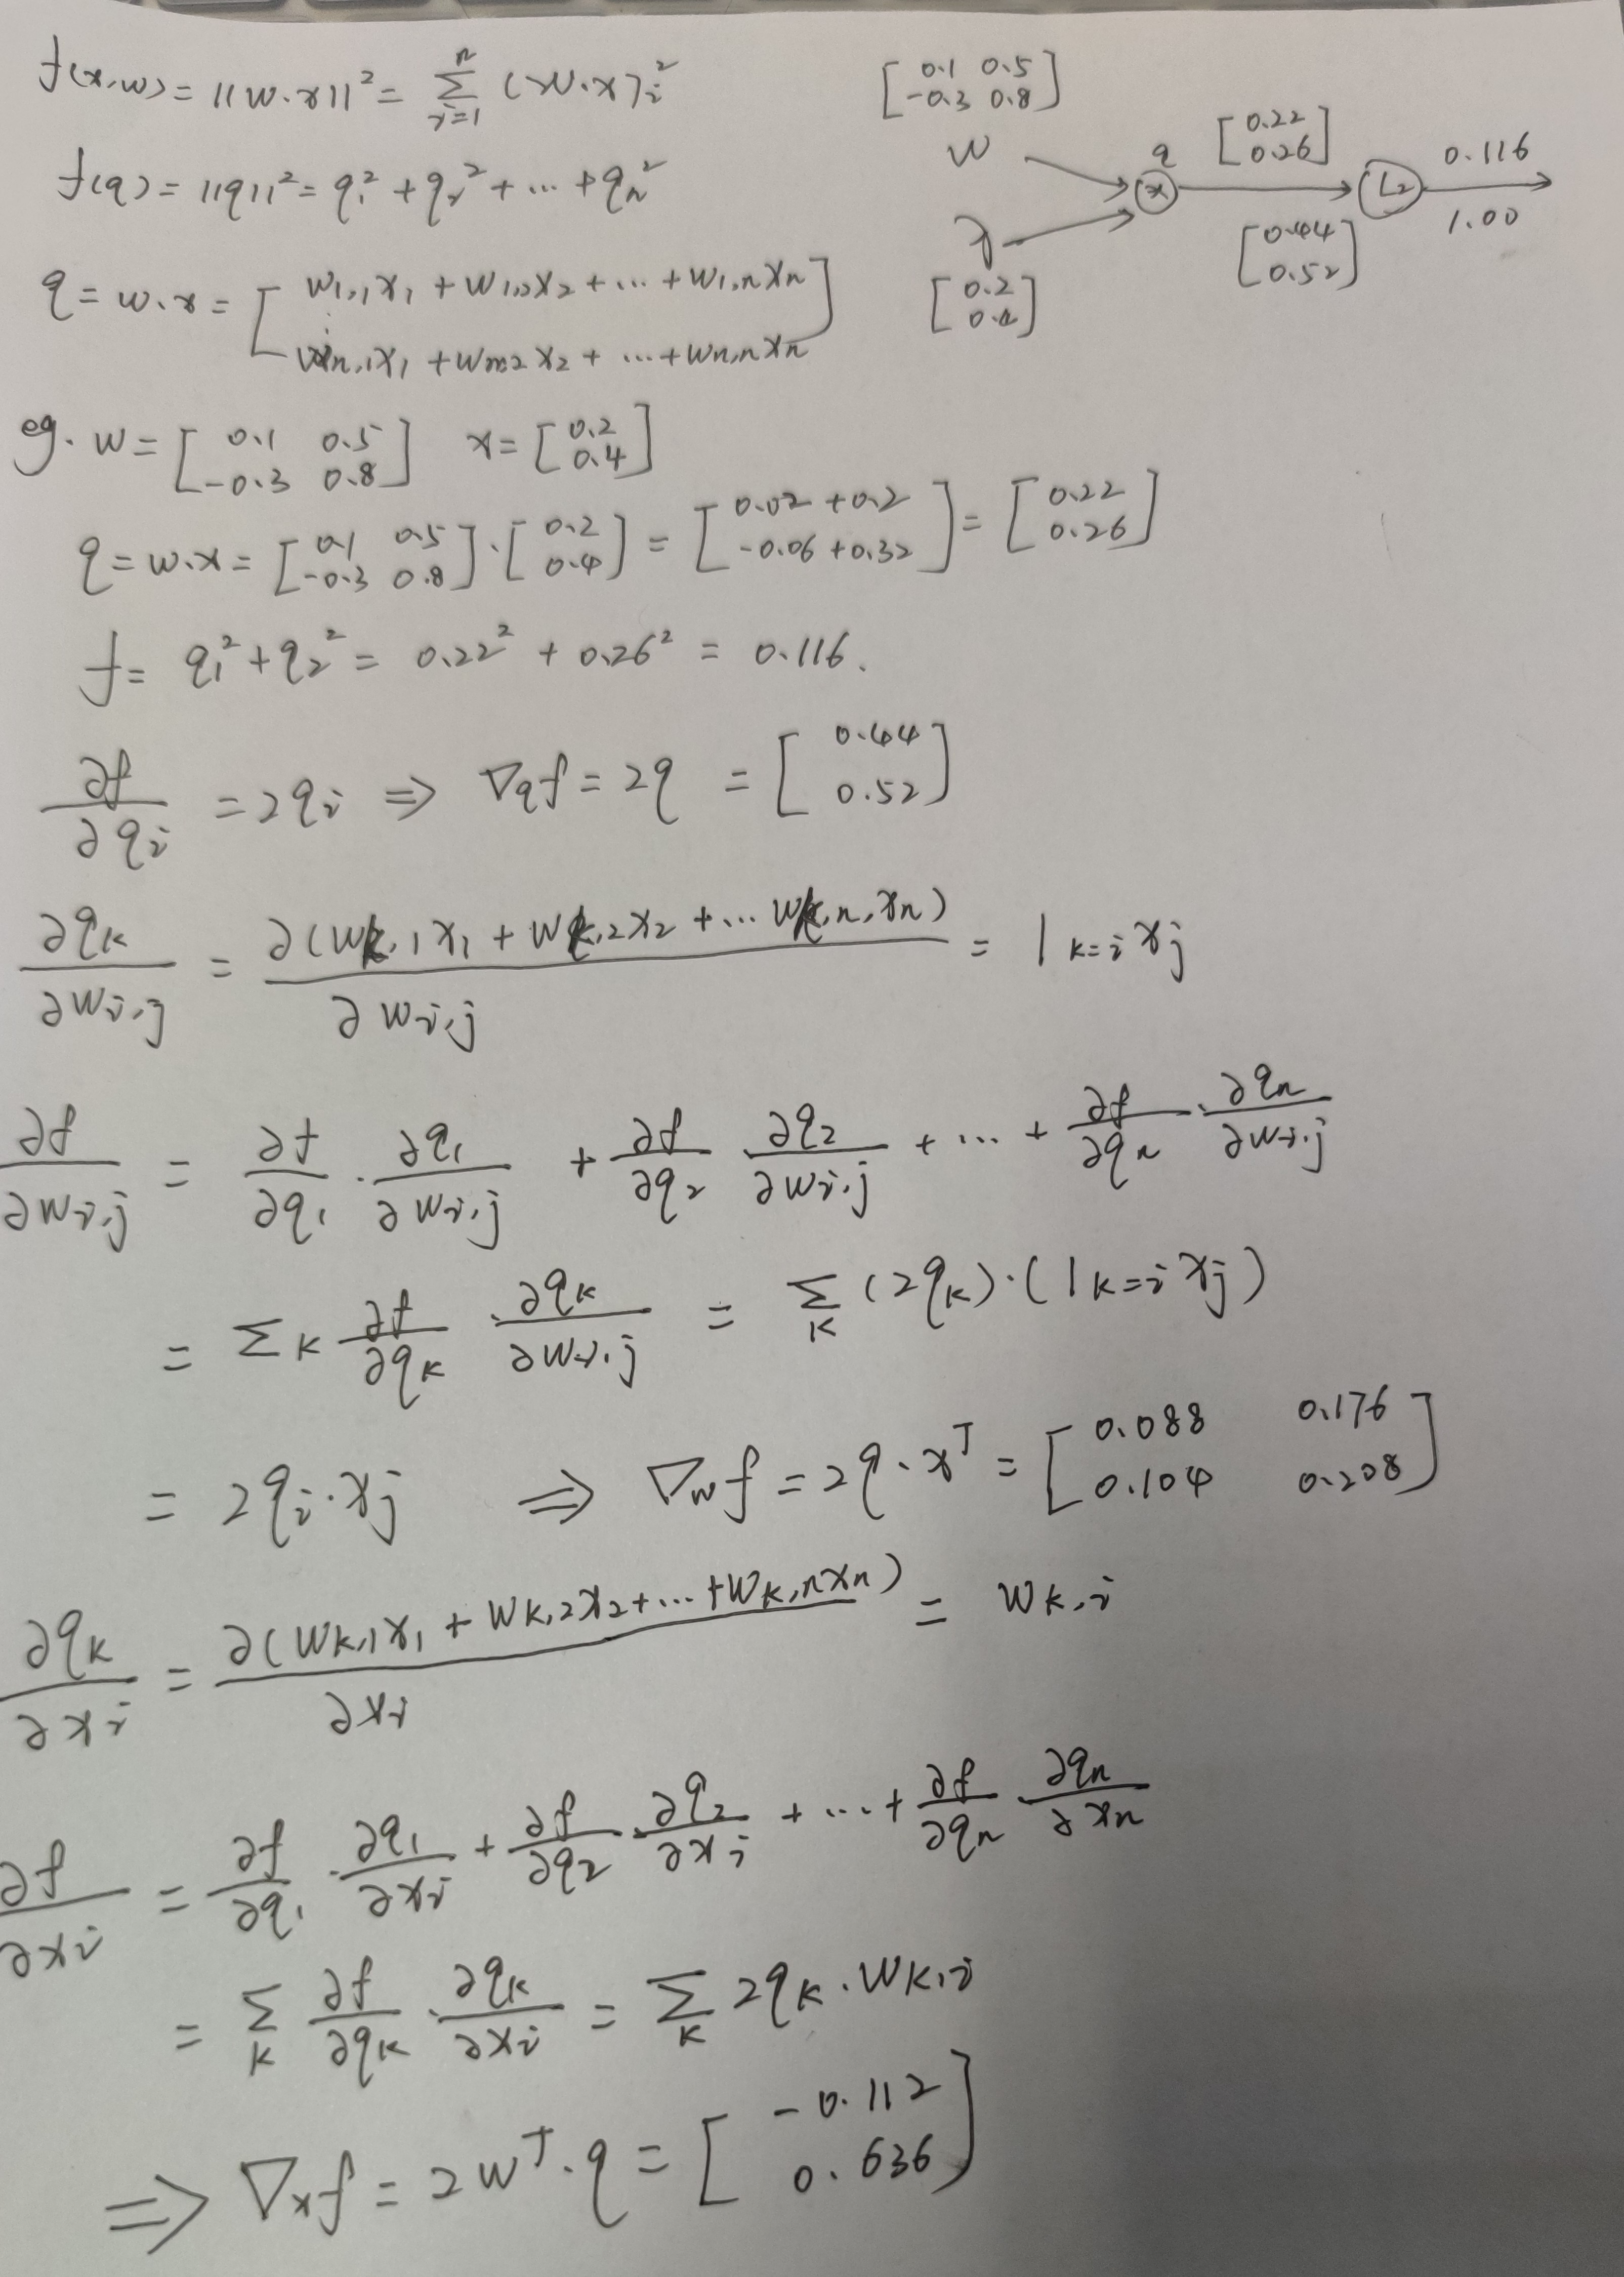 f(x,w) = ||w·x||² = Σ_{i=1}^{n} (w·x)_i²
f(q) = ||q||² = q₁² + q₂² + ... + qₙ²
q = w·x = [ w₁,₁x₁ + w₁,₂x₂ + ... + w₁,ₙxₙ
⋮
wₙ,₁x₁ + wₙ,₂x₂ + ... + wₙ,ₙxₙ ]
[ 0.1 0.5
-0.3 0.8 ]
w
x
[ 0.2
0.4 ]
q
*
[ 0.22
0.26 ]
[ 0.44
0.52 ]
L₂
0.116
1.00
eg. w = [ 0.1 0.5 ; -0.3 0.8 ] x = [ 0.2 ; 0.4 ]
q = w·x = [ 0.1 0.5 ; -0.3 0.8 ]·[ 0.2 ; 0.4 ] = [ 0.02 + 0.2 ; -0.06 + 0.32 ] = [ 0.22 ; 0.26 ]
f = q₁² + q₂² = 0.22² + 0.26² = 0.116.
∂f/∂qᵢ = 2qᵢ ⇒ ∇_q f = 2q = [ 0.44 ; 0.52 ]
∂q_k/∂w_{i,j} = ∂(w_{k,1}x₁ + w_{k,2}x₂ + ... w_{k,n},xₙ)/∂w_{i,j} = 1_{k=i} x_j
∂f/∂w_{i,j} = ∂f/∂q₁ · ∂q₁/∂w_{i,j} + ∂f/∂q₂ · ∂q₂/∂w_{i,j} + ... + ∂f/∂qₙ · ∂qₙ/∂w_{i,j}
= Σ_k ∂f/∂q_k · ∂q_k/∂w_{i,j} = Σ_k (2q_k)·(1_{k=i} x_j)
= 2qᵢ·x_j ⇒ ∇_w f = 2q·xᵀ = [ 0.088 0.176 ; 0.104 0.208 ]
∂q_k/∂xᵢ = ∂(w_{k,1}x₁ + w_{k,2}x₂ + ... + w_{k,n}xₙ)/∂xᵢ = w_{k,i}
∂f/∂xᵢ = ∂f/∂q₁ · ∂q₁/∂xᵢ + ∂f/∂q₂ · ∂q₂/∂xᵢ + ... + ∂f/∂qₙ · ∂qₙ/∂xₙ
= Σ_k ∂f/∂q_k · ∂q_k/∂xᵢ = Σ_k 2q_k · w_{k,i}
⇒ ∇_x f = 2wᵀ·q = [ -0.112 ; 0.636 ]